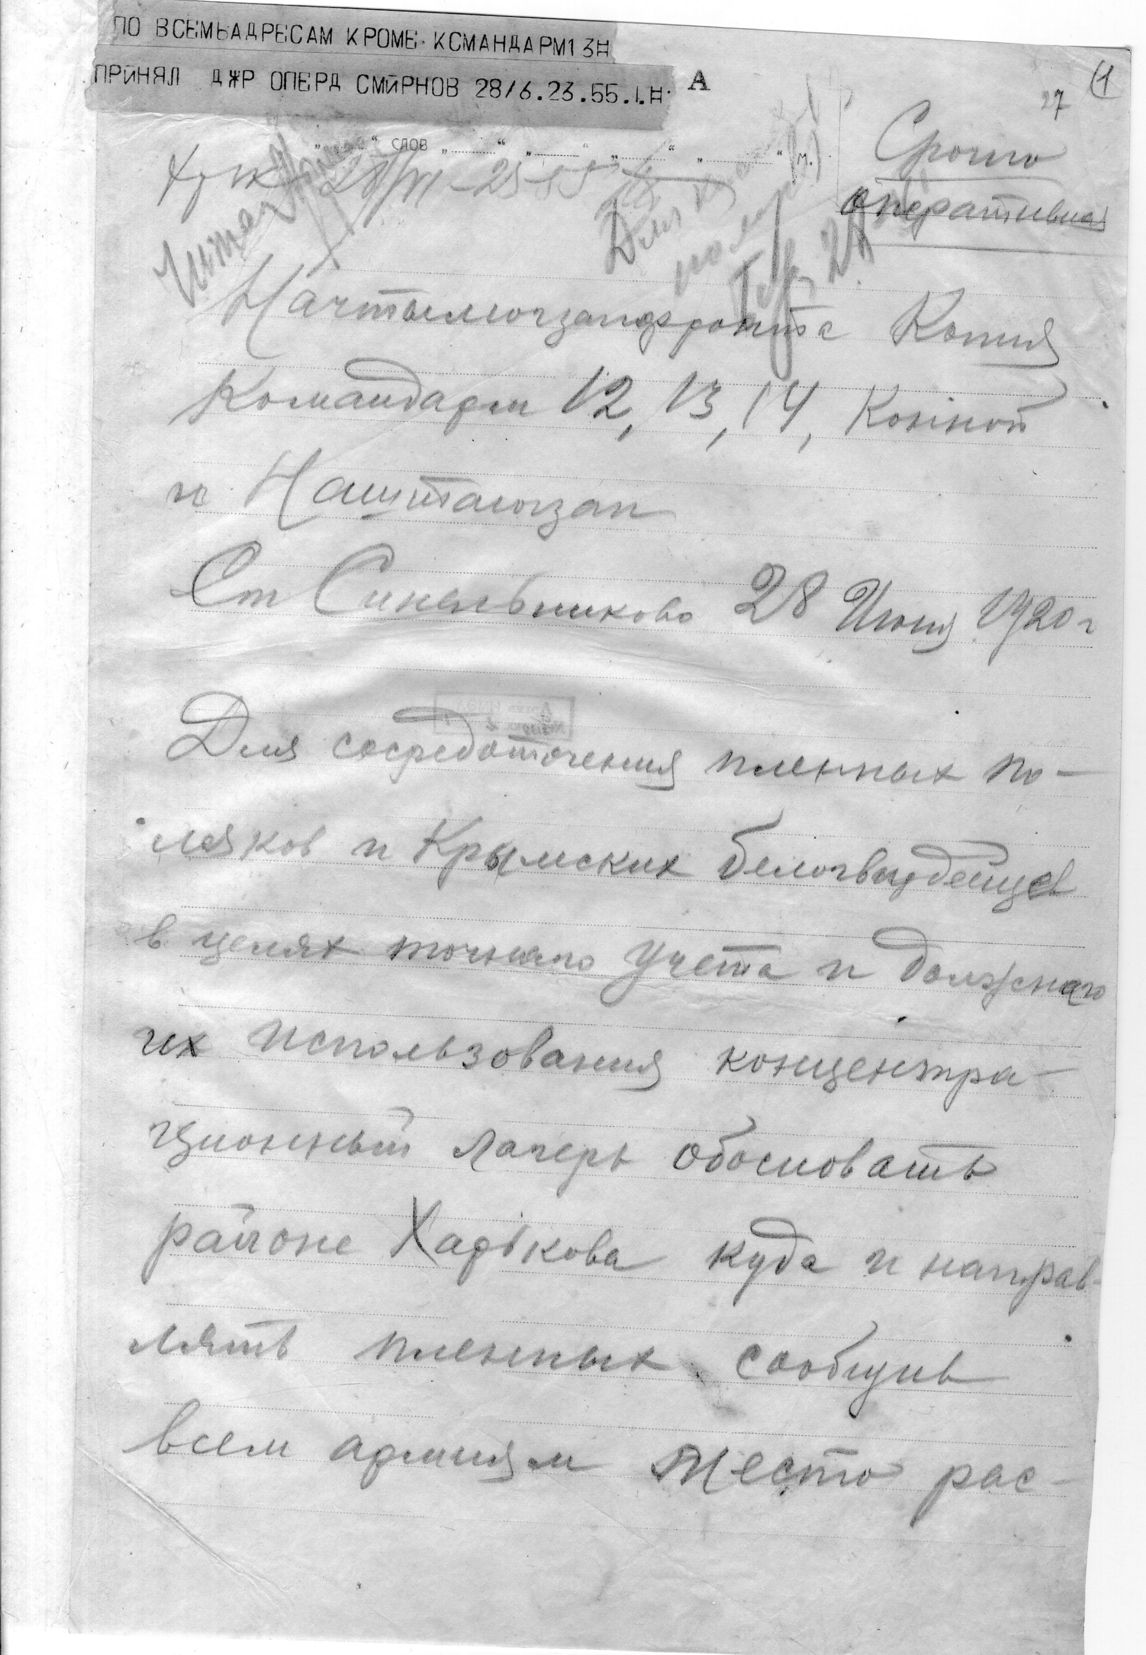 ПО ВСЕМЬАДРЕСАМ КРОМЕ КСМАНДАРМ1 3Н
ПРИНЯЛ ДЖР ОПЕРД СМИРНОВ 28/6.23.55.1.Н.
А
27
1
„ “ слов „ “ „ “ „ “ „ “ м.
Срочно
оперативная
Начтылюгзапфронта Копия
Командарм 12, 13, 14, Конной
и Наштаюгзап
Ст Синельниково 28 Июня 1920 г
Для сосредоточения пленных по-
ляков и Крымских белогвардейцев
в целях точнаго учета и должнаго
их использования концентра-
ционный лагерь обосновать
районе Харькова куда и направ-
лять пленных сообщив
всем армиям место рас-